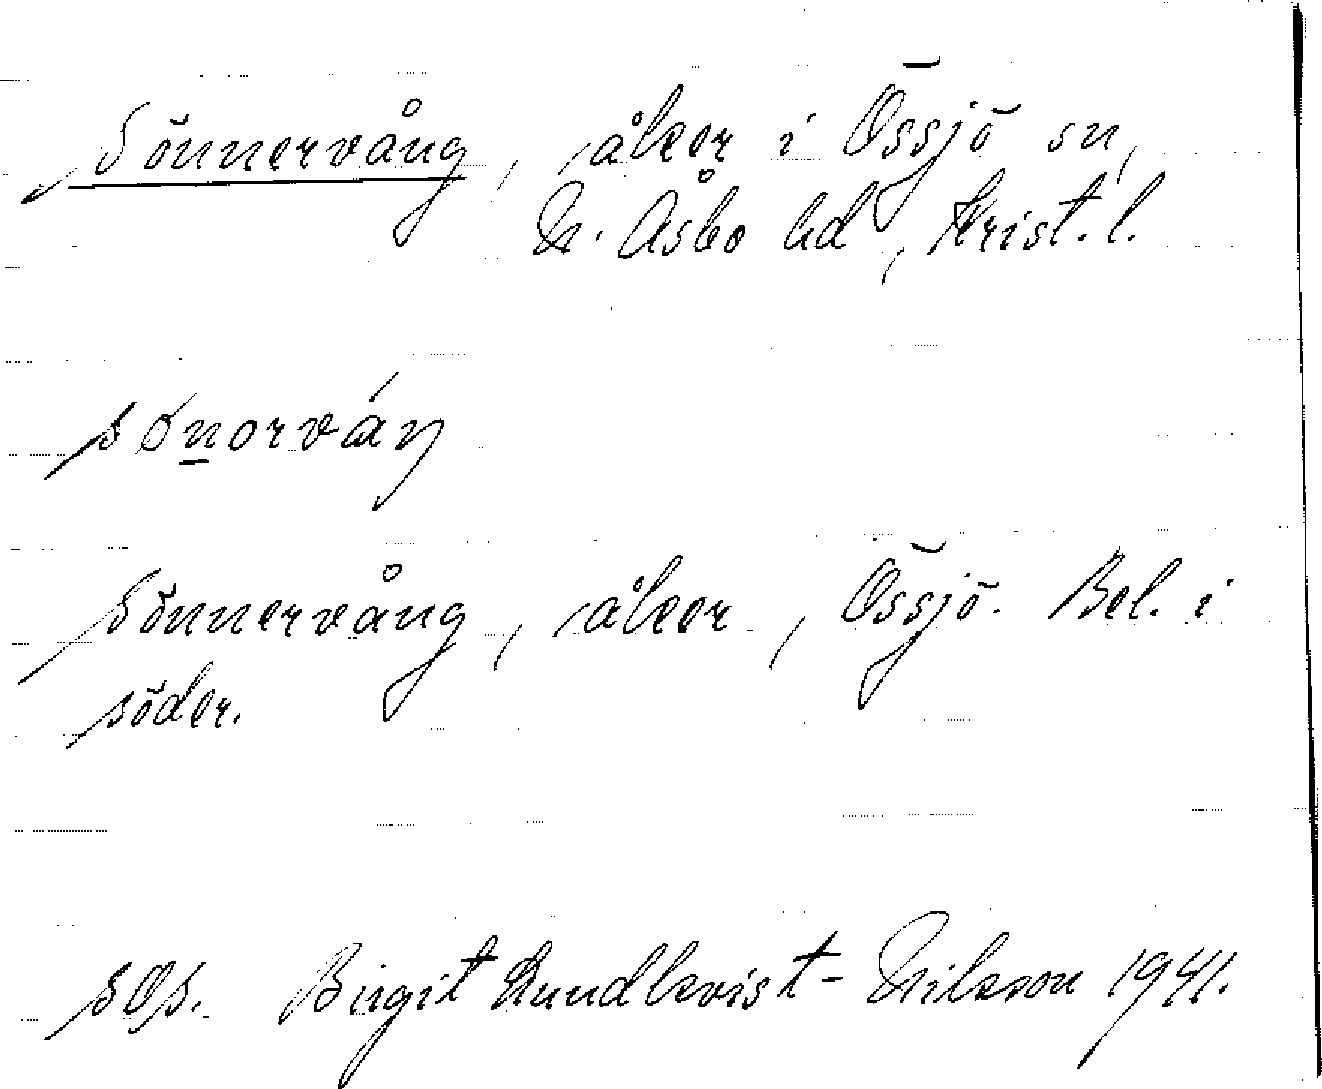 Sönnervång, åker i Össjö sn,
N. Åsbo hd, Krist. l.
Sönnervång, åker, Össjö. Bel. i
söder.
Birgit Lundkvist-Nilsson 1941.